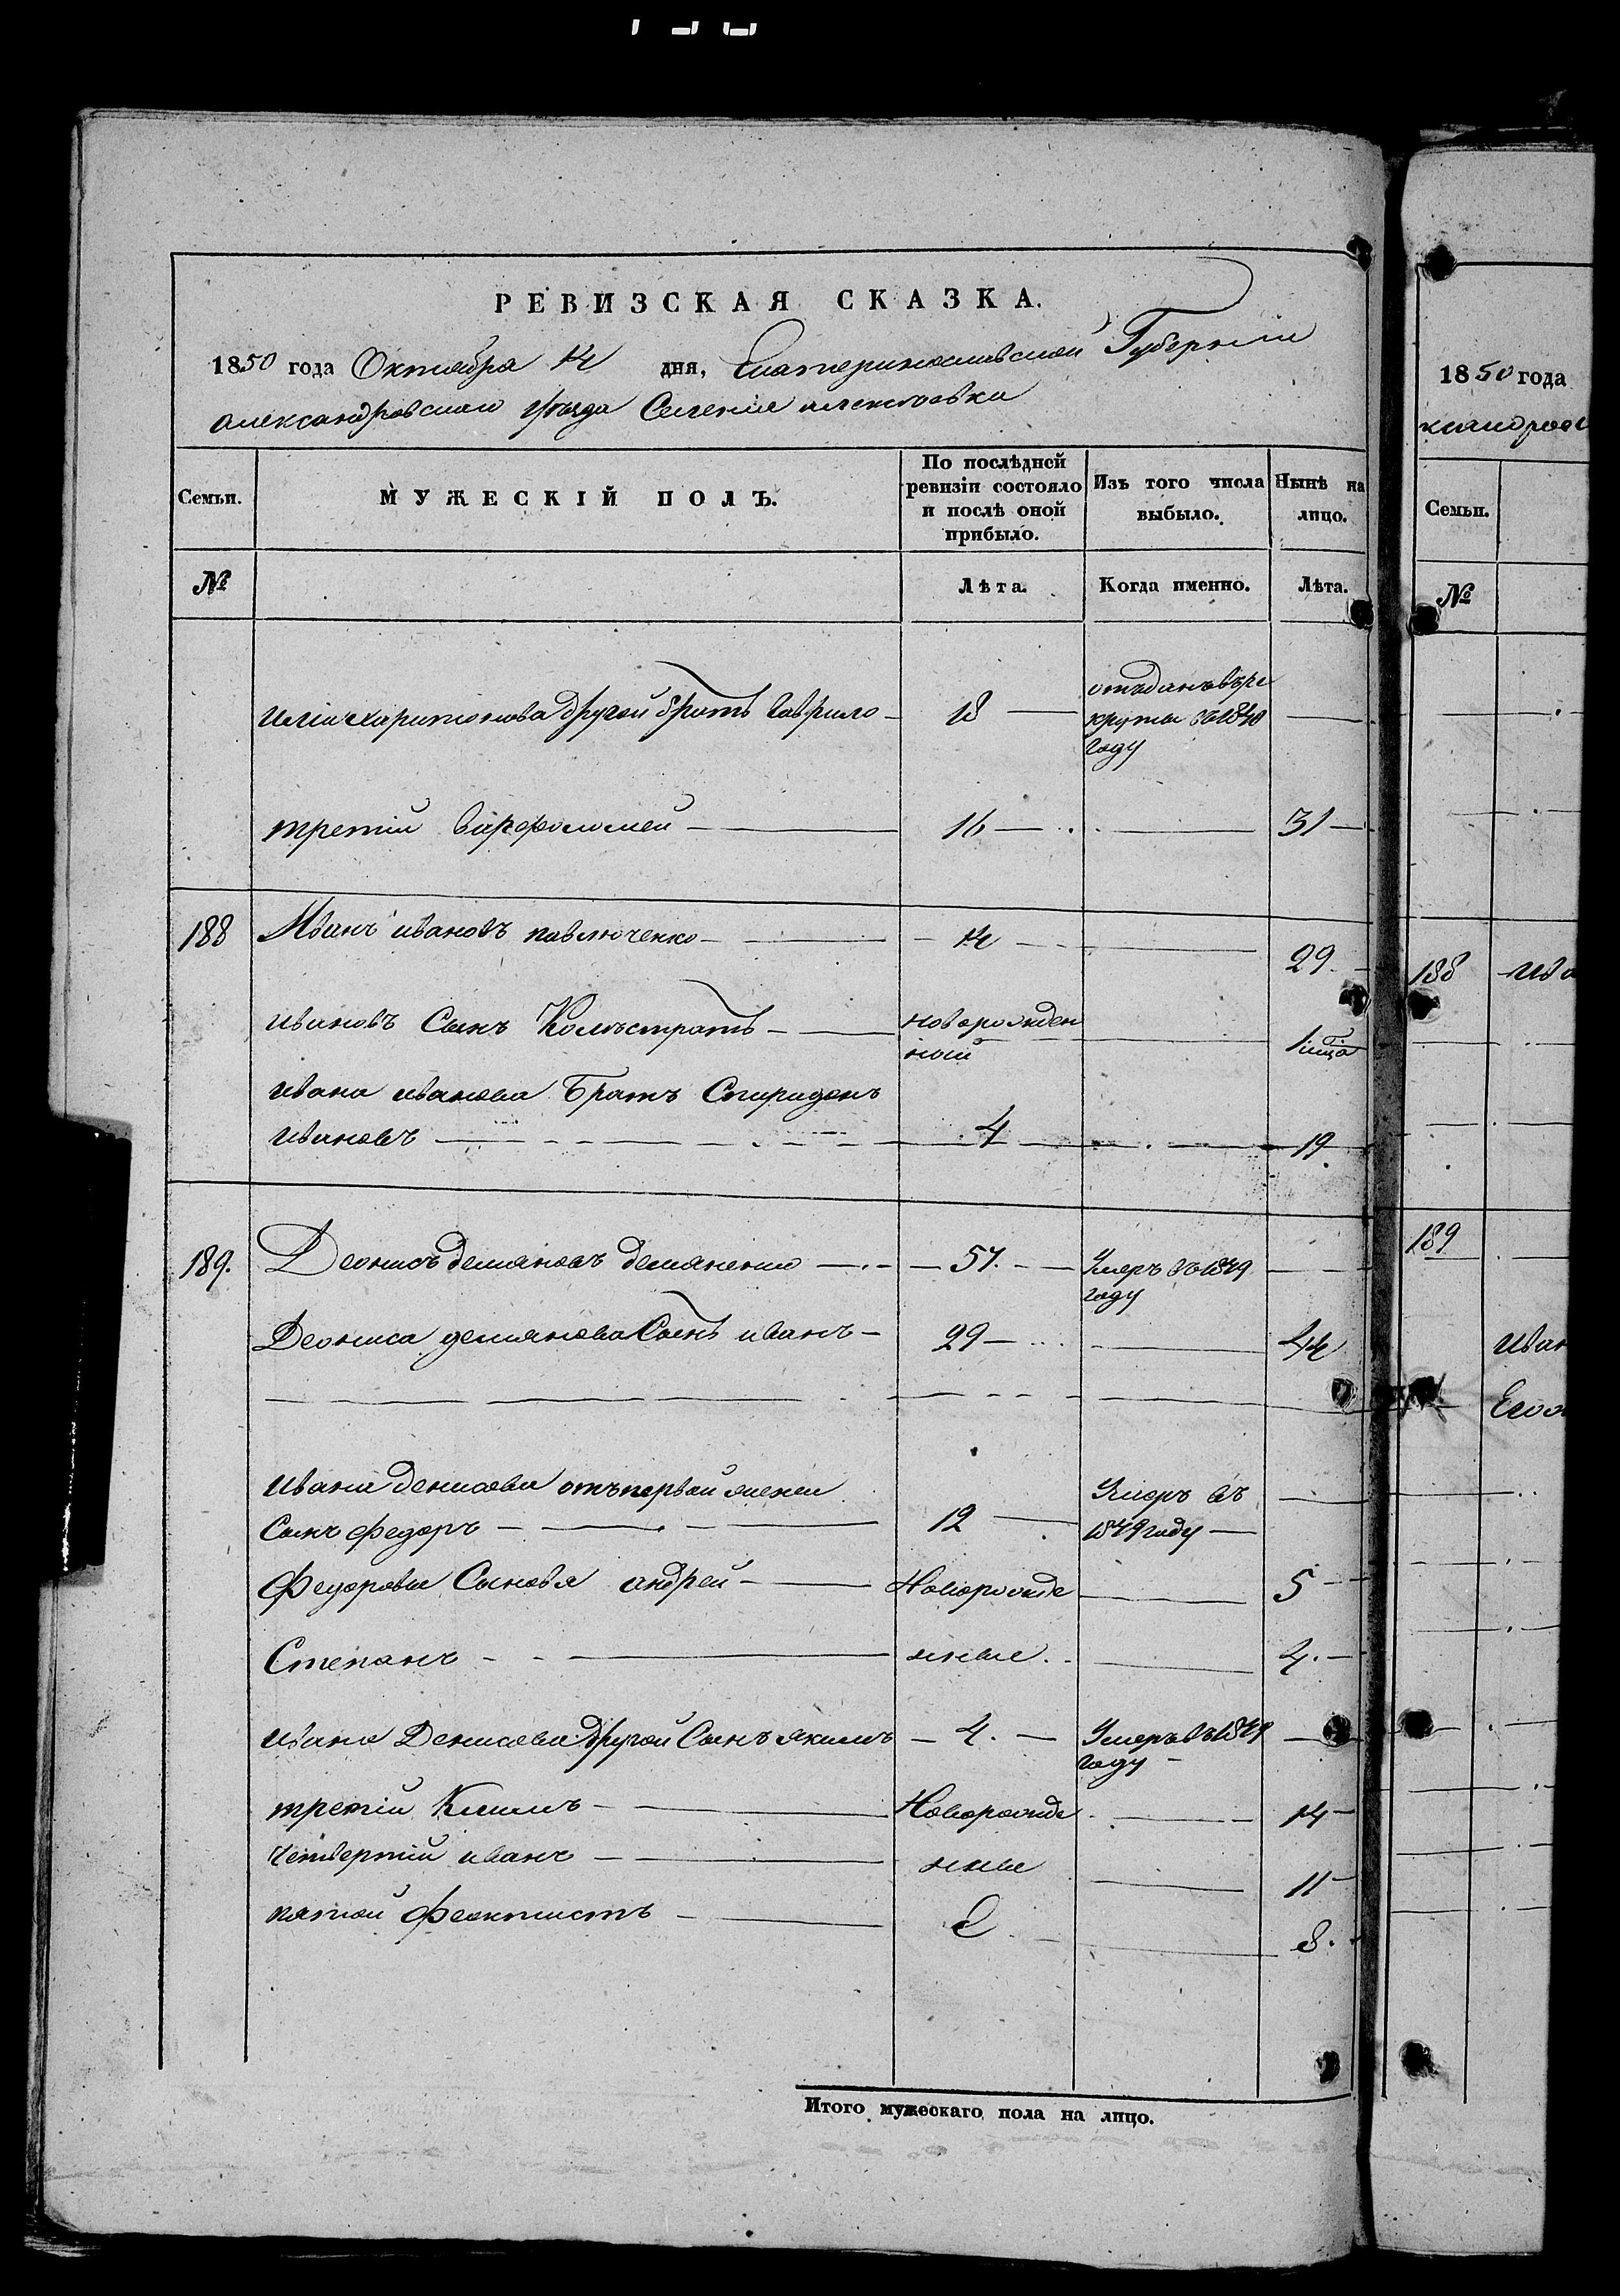 РЕВИЗСКАЯ СКАЗКА.
1850 года Октября 14 дня, Екатеринославской Губерніи
александровскаго уѣзда Селенія
Семьи.
МУЖЕСКІЙ ПОЛЪ.
По послѣдней ревизіи состояло и послѣ оной прибыло.
Изъ того числа выбыло.
Нынѣ на лицо.
№
Лѣта.
Когда именно.
Лѣта.
иліи харитонова другой братъ гаврило 18 отъданъ въ ре
круты въ 1840
году
третіи варфоломеи 16 31
188 Иванъ ивановъ павлюченко 14 29
ивановъ Сынъ Колистратъ новорожден
ный 1
ивана иванова Братъ Спиридонъ
ивановъ 4 19.
189. Деонисъ демяновъ демяненко 57. Умеръ въ 1849
году
Деониса демянова Сынъ иванъ 29 44
ивана денисова отъ первой жены
Сынъ федоръ 12 Умеръ въ
1849 году
Федоровы Сыновя андреи Новорожде 5
Степанъ нные 4.
ивана Денисова другой Сынъ якимъ 4. Умеръ въ 1849
году
третіи Климъ Новорожде 14
четвертіи иванъ нные 11
пятои Феоктистъ 8.
Итого мужескаго пола на лицо.
1850 года
Семьи.
№
188 Ива
189
Иван
Его